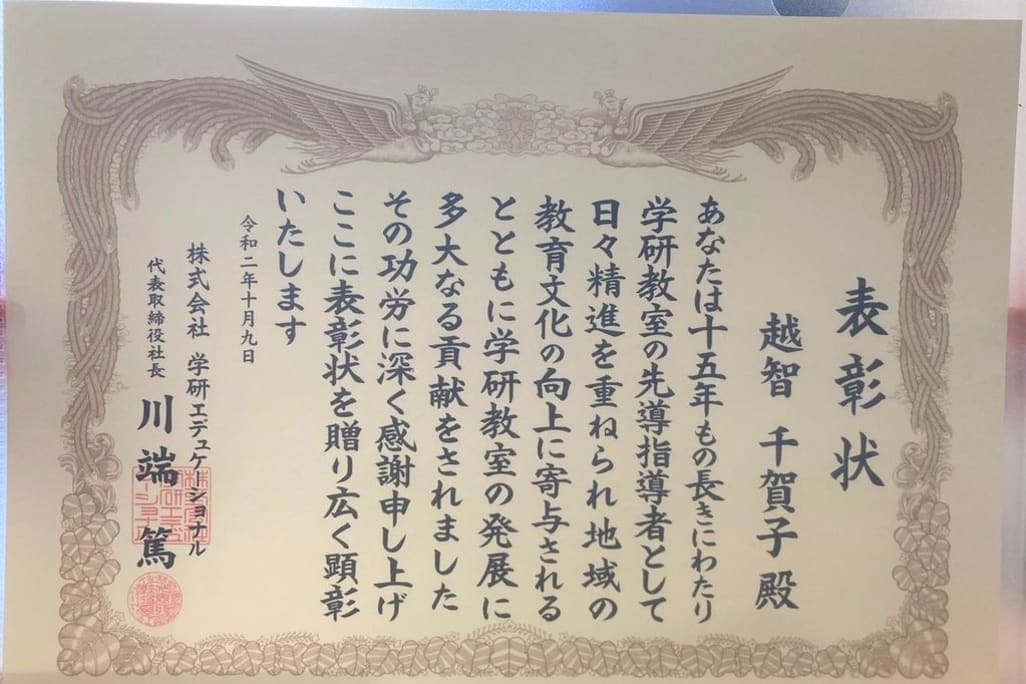 表彰状
越智 千賀子 殿
あなたは十五年もの長きにわたり
学研教室の先導指導者として
日々精進を重ねられ地域の
教育文化の向上に寄与される
とともに学研教室の発展に
多大なる貢献をされました
その功労に深く感謝申し上げ
ここに表彰状を贈り広く顕彰
いたします
令和二年十月九日
株式会社 学研エデュケーショナル
代表取締役社長 川端 篤